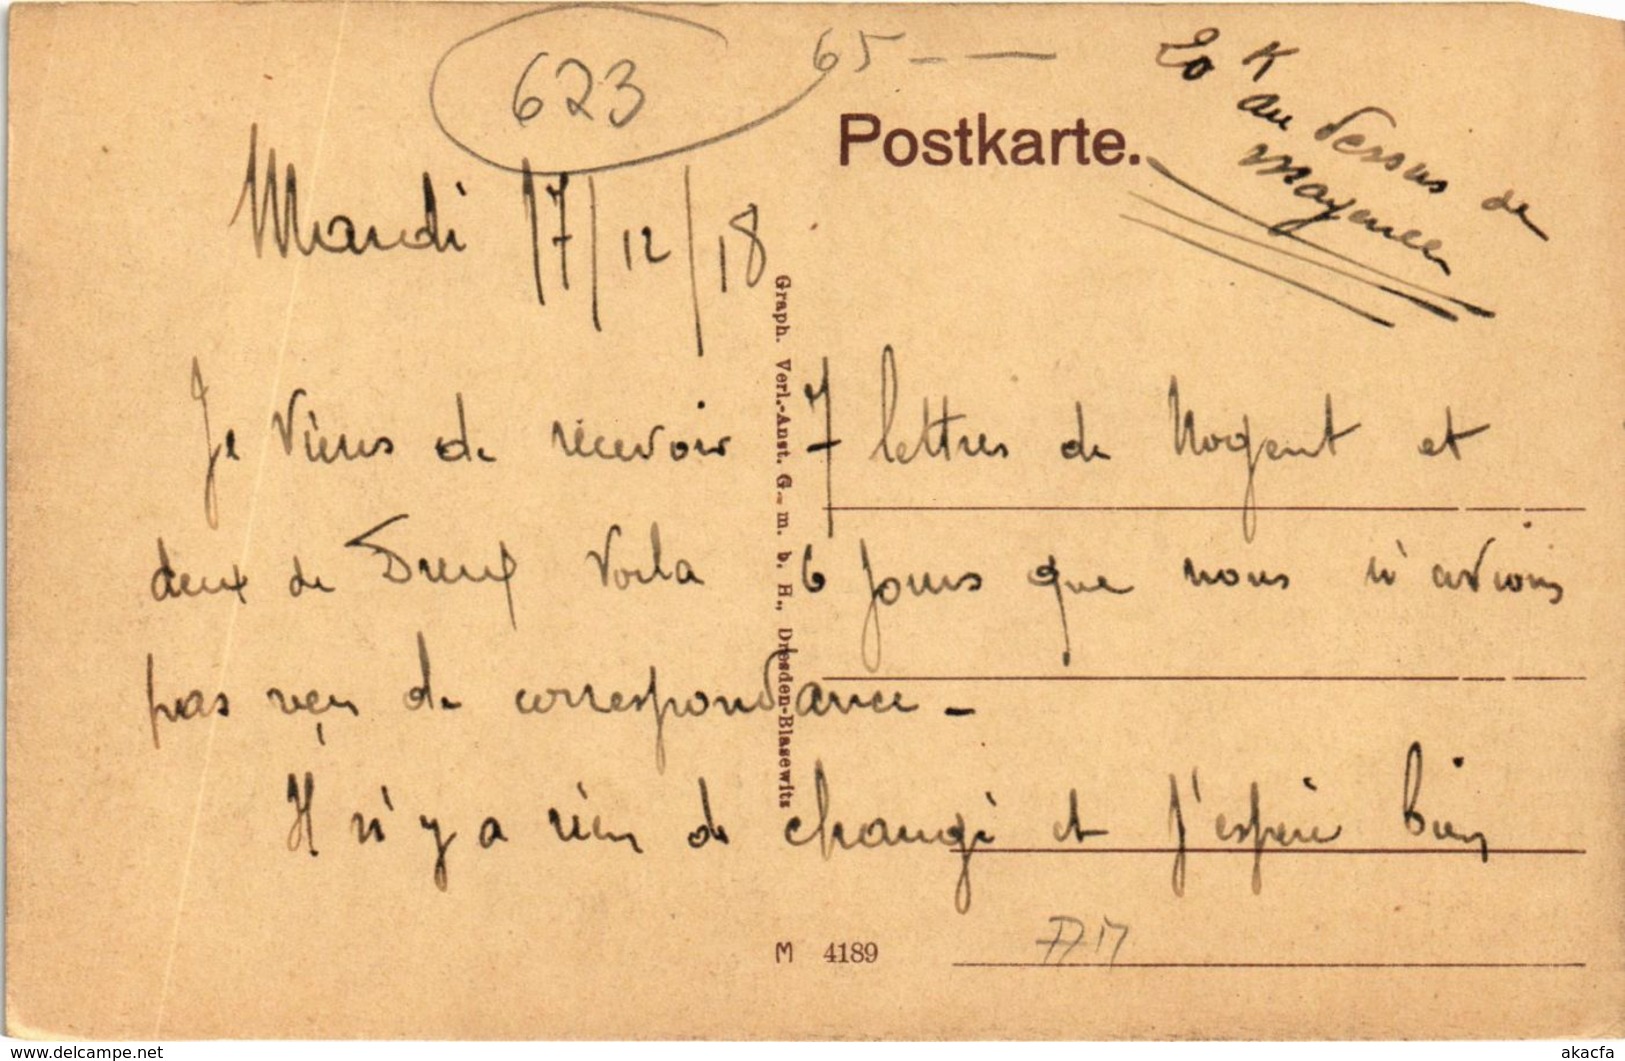 623
65 - —
20 K
au dessus de
mayence
Postkarte.
Mardi 17/12/18
Je viens de recevoir 7 lettres de Nogent et
deux de Dreux Voila 6 jours que nous n'avions
pas reçu de correspondance -
Il n'y a rien de changé et j'espère bien
Graph. Verl.-Anst. G. m. b. H., Dresden-Blasewitz
M 4189
www.delcampe.net
akacfa